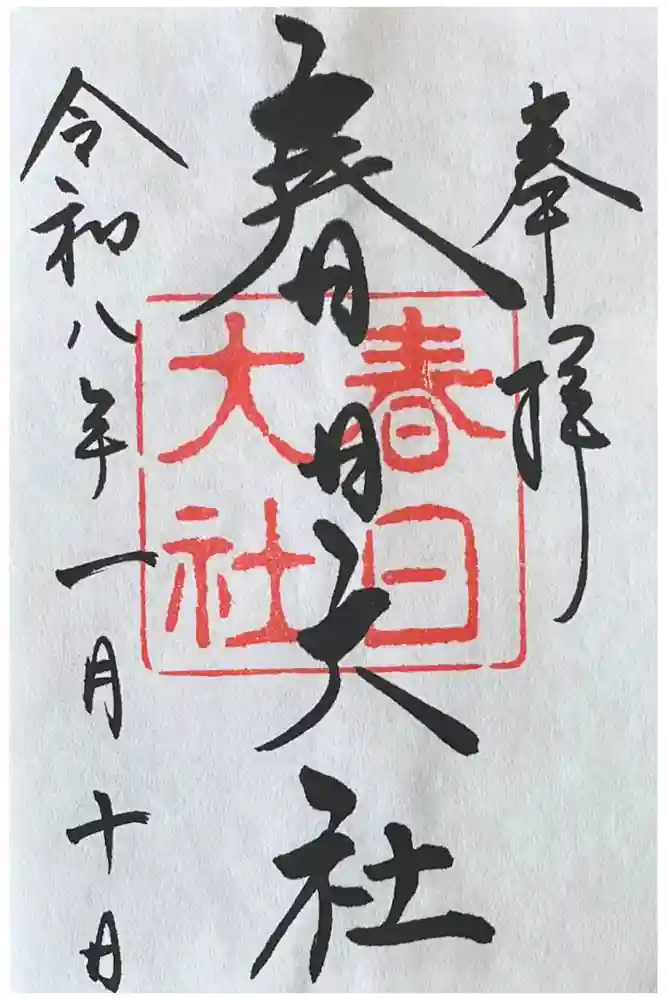 奉拝
春日大社
令和八年一月十日
春日
大社